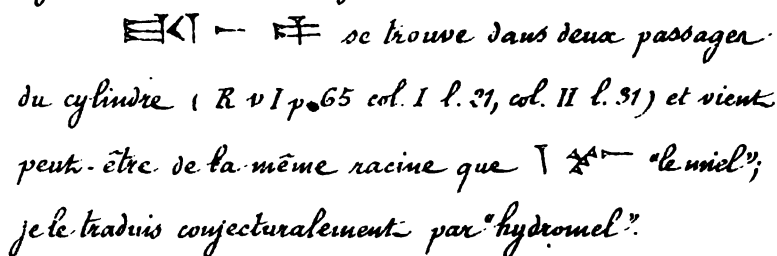 se trouve dans deux passages
du cylindre ( R v I p. 65 col. I l. 21, col. II l. 31) et vient
peut-être de la même racine que "le miel";
je le traduis conjecturalement par "hydromel".